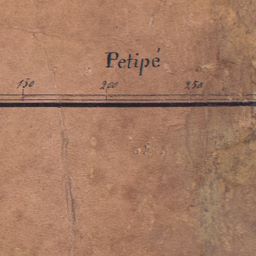 Petipé
150 200 250